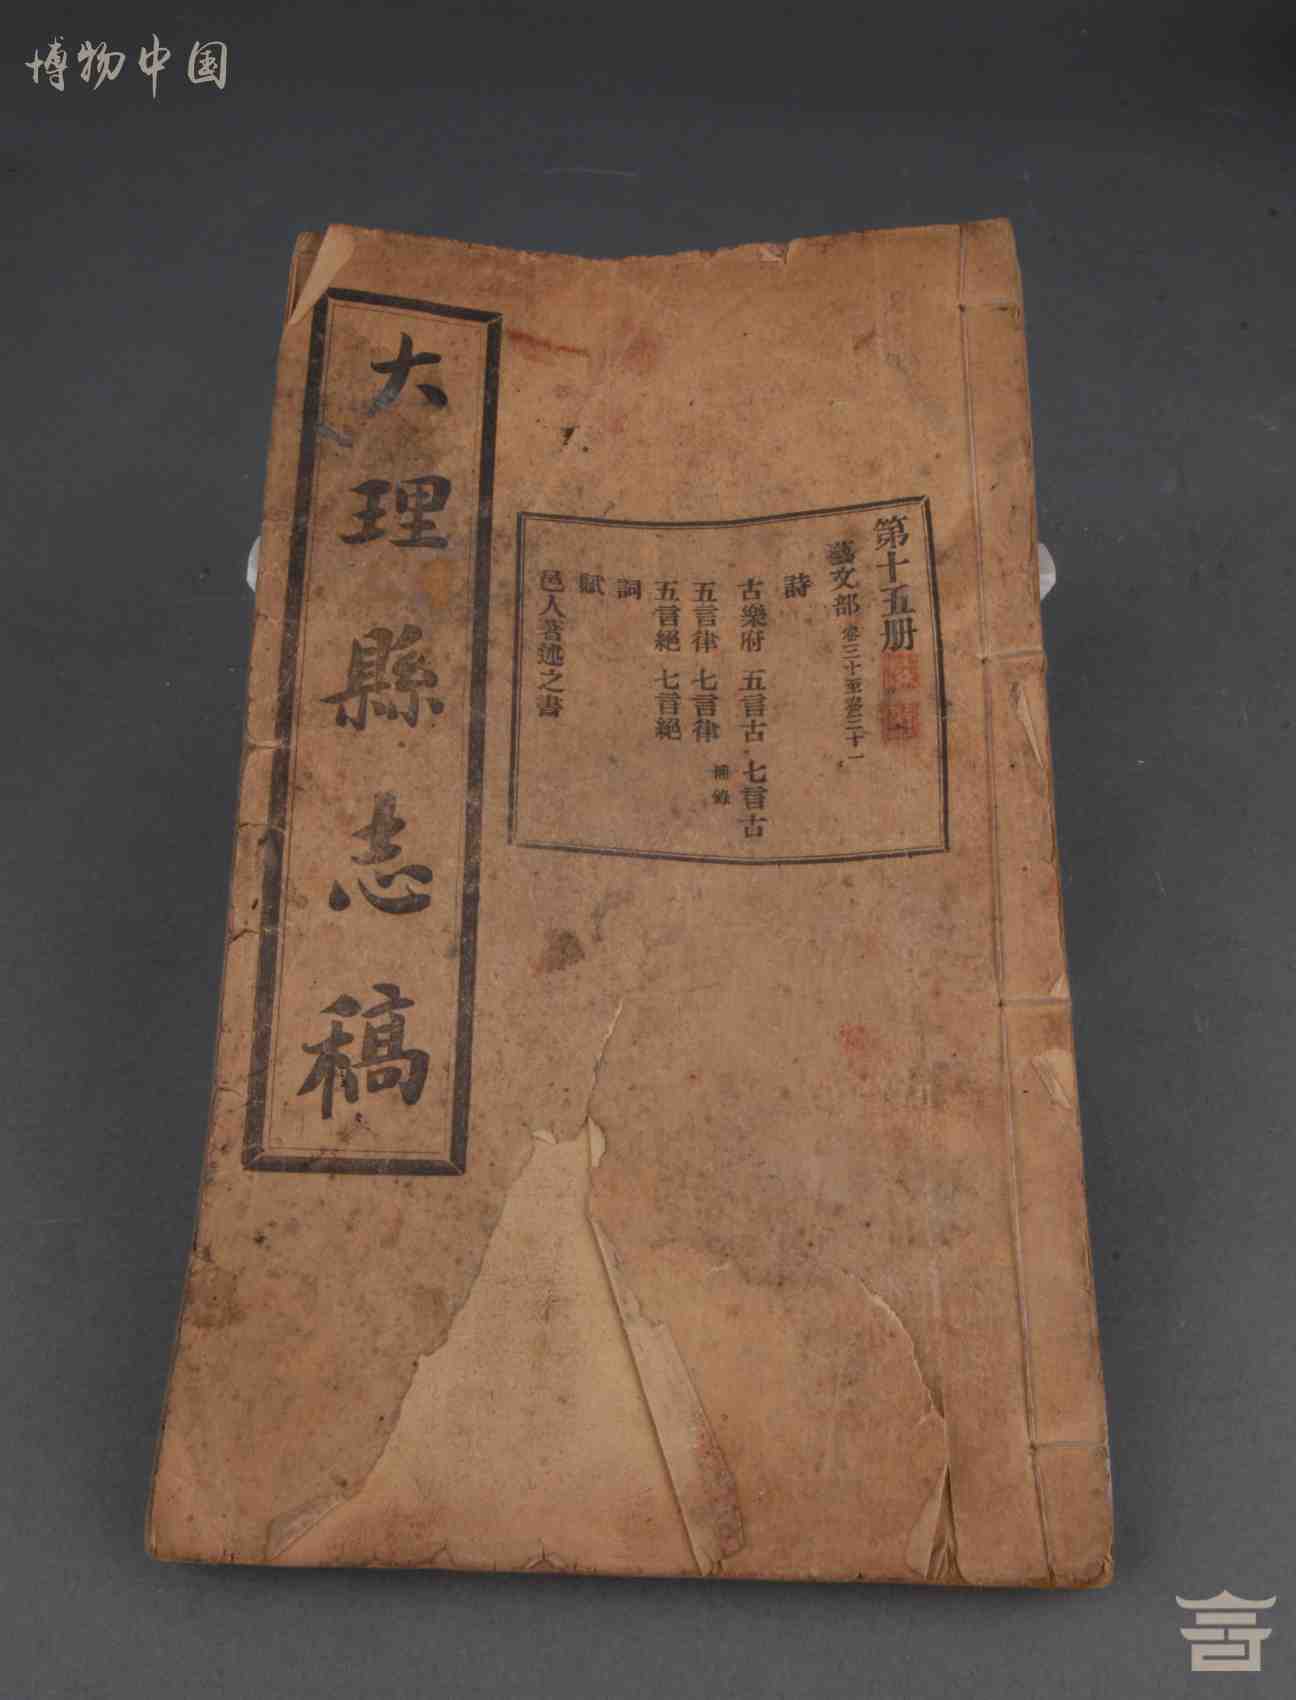 博物中国
第十五册
藝文部 卷三十至卷三十一
詩
古樂府 五言古 七言古
五言律 七言律 補錄
五言絕 七言絕
詞
賦
邑人著述之書
大理縣志稿